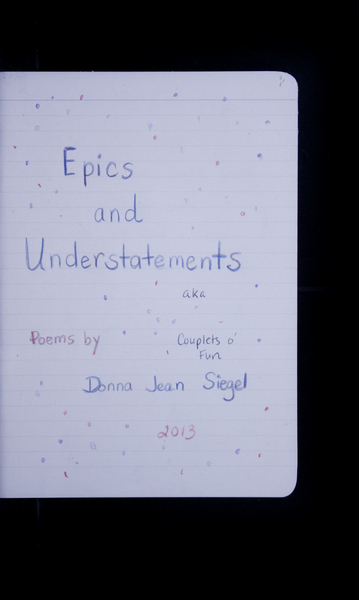 Epics
and
Understatements
aka
Poems by
Couplets o'
Fun
Donna Jean Siegel
2013